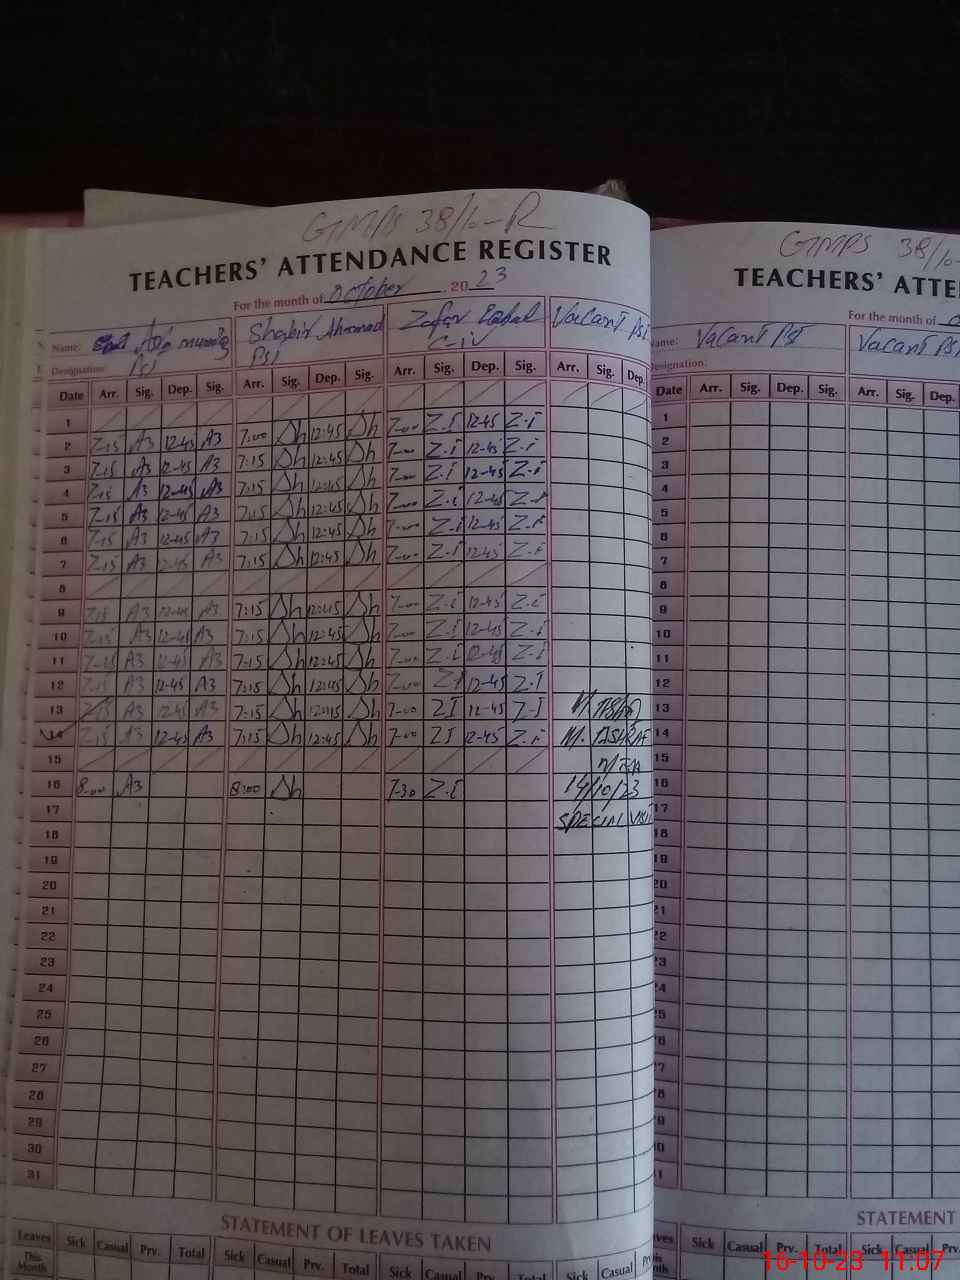 GMPS 38/10-R
TEACHERS' ATTENDANCE REGISTER
For the month of October, 2023
Name: Shabir Ahmad Zafar Iqbal Vacant PST
Designation: PST PST C-iv
Date Arr. Sig. Dep. Sig. Arr. Sig. Dep. Sig. Arr. Sig. Dep. Sig. Arr. Sig. Dep.
1
2 7-15 A3 12-45 A3 7:00 Sh 12:45 Sh 7-00 Z.I 12-45 Z.I
3 7-15 A3 12-45 A3 7:15 Sh 12:45 Sh 7-00 Z.I 12-45 Z.I
4 7-15 A3 12-45 A3 7:15 Sh 12:45 Sh 7-00 Z.I 12-45 Z.I
5 7-15 A3 12-45 A3 7:15 Sh 12:45 Sh 7-00 Z.I 12-45 Z.I
6 7-15 A3 12-45 A3 7:15 Sh 12:45 Sh 7-00 Z.I 12-45 Z.I
7 7-15 A3 12-45 A3 7:15 Sh 12:45 Sh 7-00 Z.I 12-45 Z.I
8
9 7-15 A3 12-45 A3 7:15 Sh 12:45 Sh 7-00 Z.I 12-45 Z.I
10 7-15 A3 12-45 A3 7:15 Sh 12:45 Sh 7-00 Z.I 12-45 Z.I
11 7-15 A3 12-45 A3 7:15 Sh 12:45 Sh 7-00 Z.I 12-45 Z.I
12 7-15 A3 12-45 A3 7:15 Sh 12:45 Sh 7-00 Z.I 12-45 Z.I
13 7-15 A3 12-45 A3 7:15 Sh 12:45 Sh 7-00 ZI 12-45 Z-I
14 7-15 A3 12-45 A3 7:15 Sh 12:45 Sh 7-00 ZI 12-45 Z.I M. ASHRAF
15 MEA
16 8-00 A3 8:00 Sh 7-30 Z.I 14/10/23
17 SPECIAL VISIT
18
19
20
21
22
23
24
25
26
27
28
29
30
31
STATEMENT OF LEAVES TAKEN
Leaves Sick Casual Prv. Total Sick Casual Prv. Total Sick Casual Prv. Total Sick Casual
This Month
GMPS 38/10-
TEACHERS' ATTE
For the month of
Name: Vacant PST Vacant PST
Designation:
Date Arr. Sig. Dep. Sig. Arr. Sig. Dep.
1
2
3
4
5
6
7
8
9
10
11
12
13
14
15
16
17
18
19
20
21
22
23
24
25
26
27
28
29
30
31
STATEMENT
Sick Casual Prv. Total Sick Casual
16-10-23 11:07